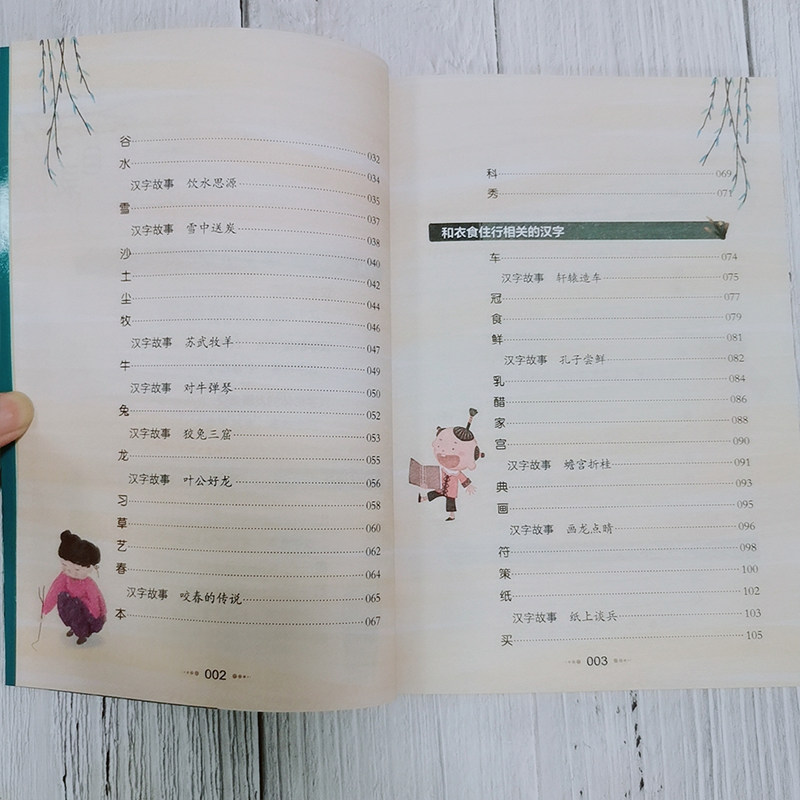 谷 032
水 034
汉字故事 饮水思源 035
雪 037
汉字故事 雪中送炭 038
沙 040
土 042
尘 044
牧 046
汉字故事 苏武牧羊 047
牛 049
汉字故事 对牛弹琴 050
兔 052
汉字故事 狡兔三窟 053
龙 055
汉字故事 叶公好龙 056
习 058
草 060
艺 062
春 064
汉字故事 咬春的传说 065
本 067
002
科 069
秀 071
和衣食住行相关的汉字
车 074
汉字故事 轩辕造车 075
冠 077
食 079
鲜 081
汉字故事 孔子尝鲜 082
乳 084
醋 086
家 088
宫 090
汉字故事 蟾宫折桂 091
典 093
画 095
汉字故事 画龙点睛 096
符 098
策 100
纸 102
汉字故事 纸上谈兵 103
买 105
003